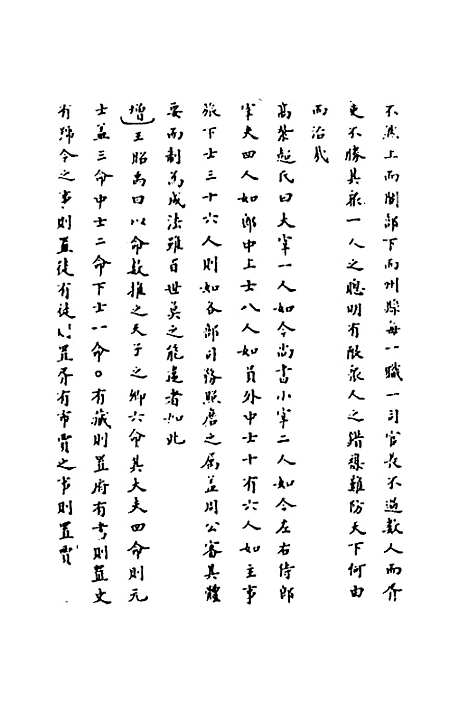 不然上而閣部下而州縣每一職一司官長不過數人而胥
吏不勝其衆一人之聰明有限衆人之錯綜難防天下何由
而治哉
高紫超氏曰大宰一人如今尚書小宰二人如今左右侍郎
宰夫四人如郎中上士八人如員外中士十有六人如主事
旅下士三十六人則如各部司務照磨之屬蓋周公審其體
要而制為成法雖百世莫之能違者如此
增王昭禹曰以命數推之天子之卿六命其大夫四命則元
士蓋三命中士二命下士一命○有藏則置府有書則置史
有歸令之事則置徒有徒則置胥有市賈之事則置賈